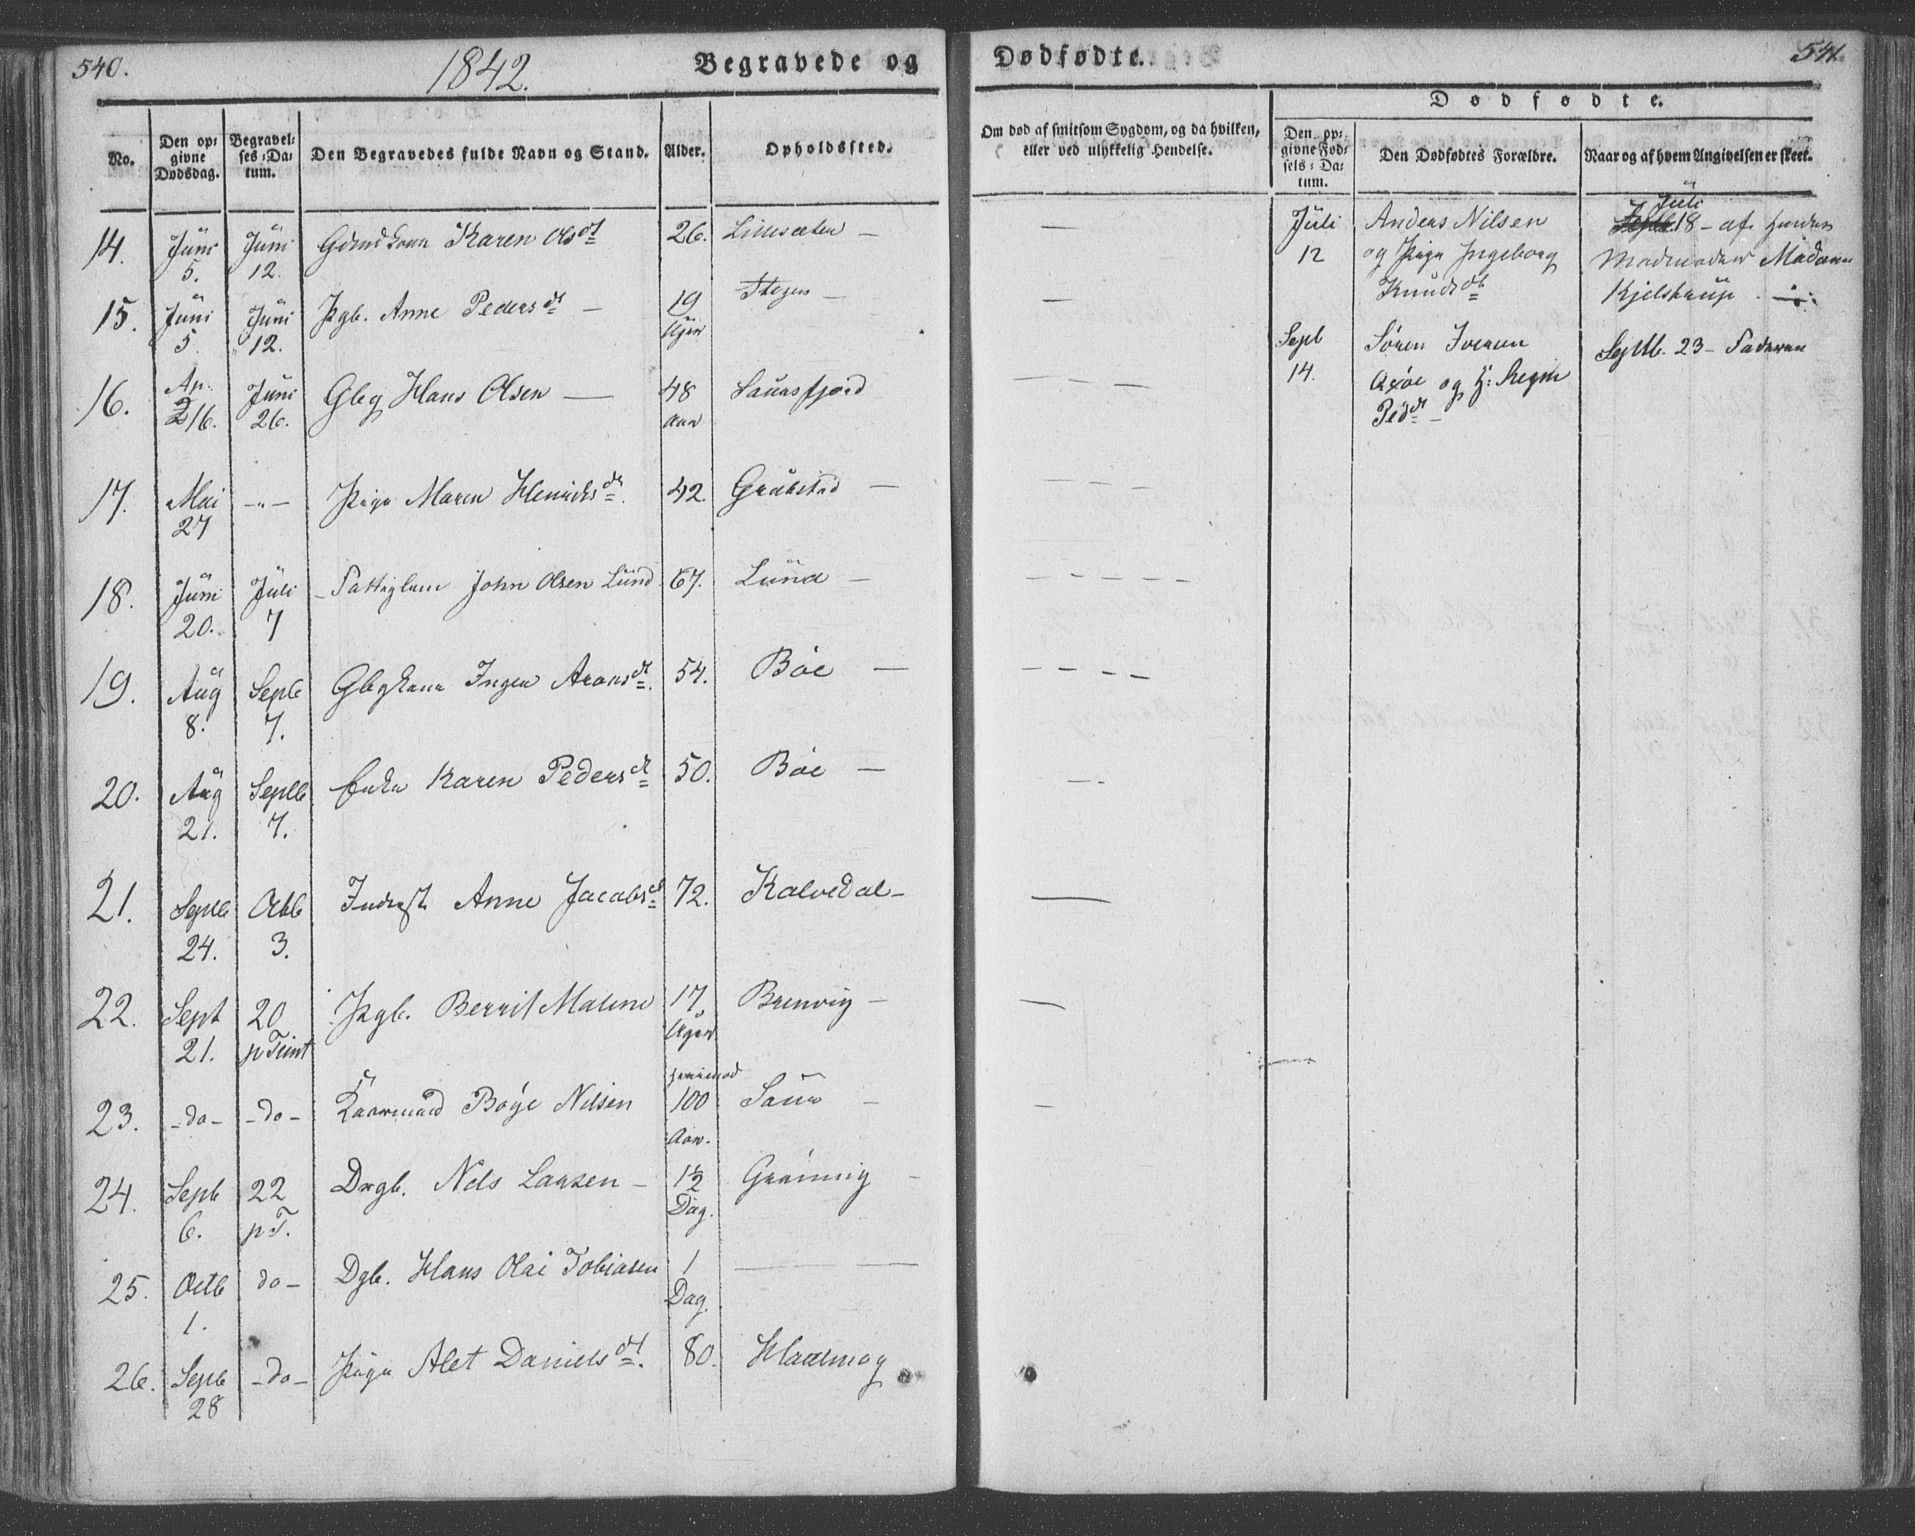 540.
1842.
Begravede og
No.
Den opgivne Dødsdag.
Begravelses-Datum.
Den Begravedes fulde Navn og Stand.
Alder.
Opholdssted.
14. Juni 5. Juni 12. Karen Olsdt 26. —
15. Juni 5. Juni 12. Pgb. Anne Pedersdt — 19 Uger Stegen —
16. Ap. 16. Juni 26. Gbg Hans Olsen — 48 Aar
17. Mai 27 —"— Pige Maren Henriksdt. 42. —
18. Juni 20. Juli 7 John Olsen Lund 67. Lund —
19. Aug 8. Septb 7. Gbgkone Inger Aronsdt. 54. Bøe —
20. Aug 21. Septb 7. Enke Karen Pedersdt 50. Bøe —
21. Septb 24. Octb 3. Inderst Anne Jacobsdt 72. Kalvedal —
22. Sept 21. 20 p Trint Pgb. Berrit Malene 17 Uger Brenvig —
23. —do— —do— Bøye Nilsen 100 Aar. —
24. Septb 6. 22 p T. Drgb. Nels Larsen — 1½ Dag. —
25. Octb 1. do — Dgb. Hans Olai Tobiasen 1 Dag. —
26. Septb 28 —do— Pige Alet Danielsdt. 80.
Dødfødte.
541.
Om død af smitsom Sygdom, og da hvilken,
eller ved ulykkelig Hendelse.
Dødfødte.
Den opgivne Fødsels-Datum.
Den Dødfødtes Forældre.
Naar og af hvem Angivelsen er skeet.
Juli 12
Anders Nilsen
og Pige Ingeborg
Knudsdt
Juli
18 — af
Madame
Kjelstrup
Sept 14.
Søren Iversen
og
Peddt —
Septb. 23 — Faderen